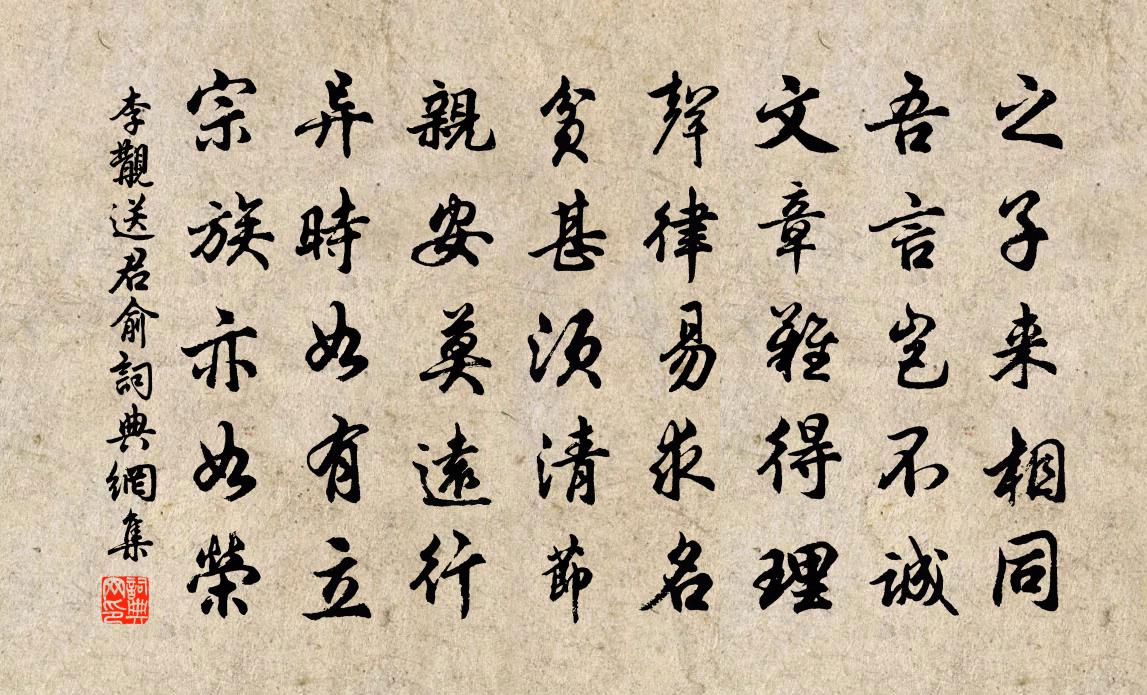 之子来相同
吾言岂不誠
文章難得理
聲律易求名
貧甚須清節
親安莫遠行
异時如有立
宗族亦如榮
李覯送君俞詞典網集
詞典网印